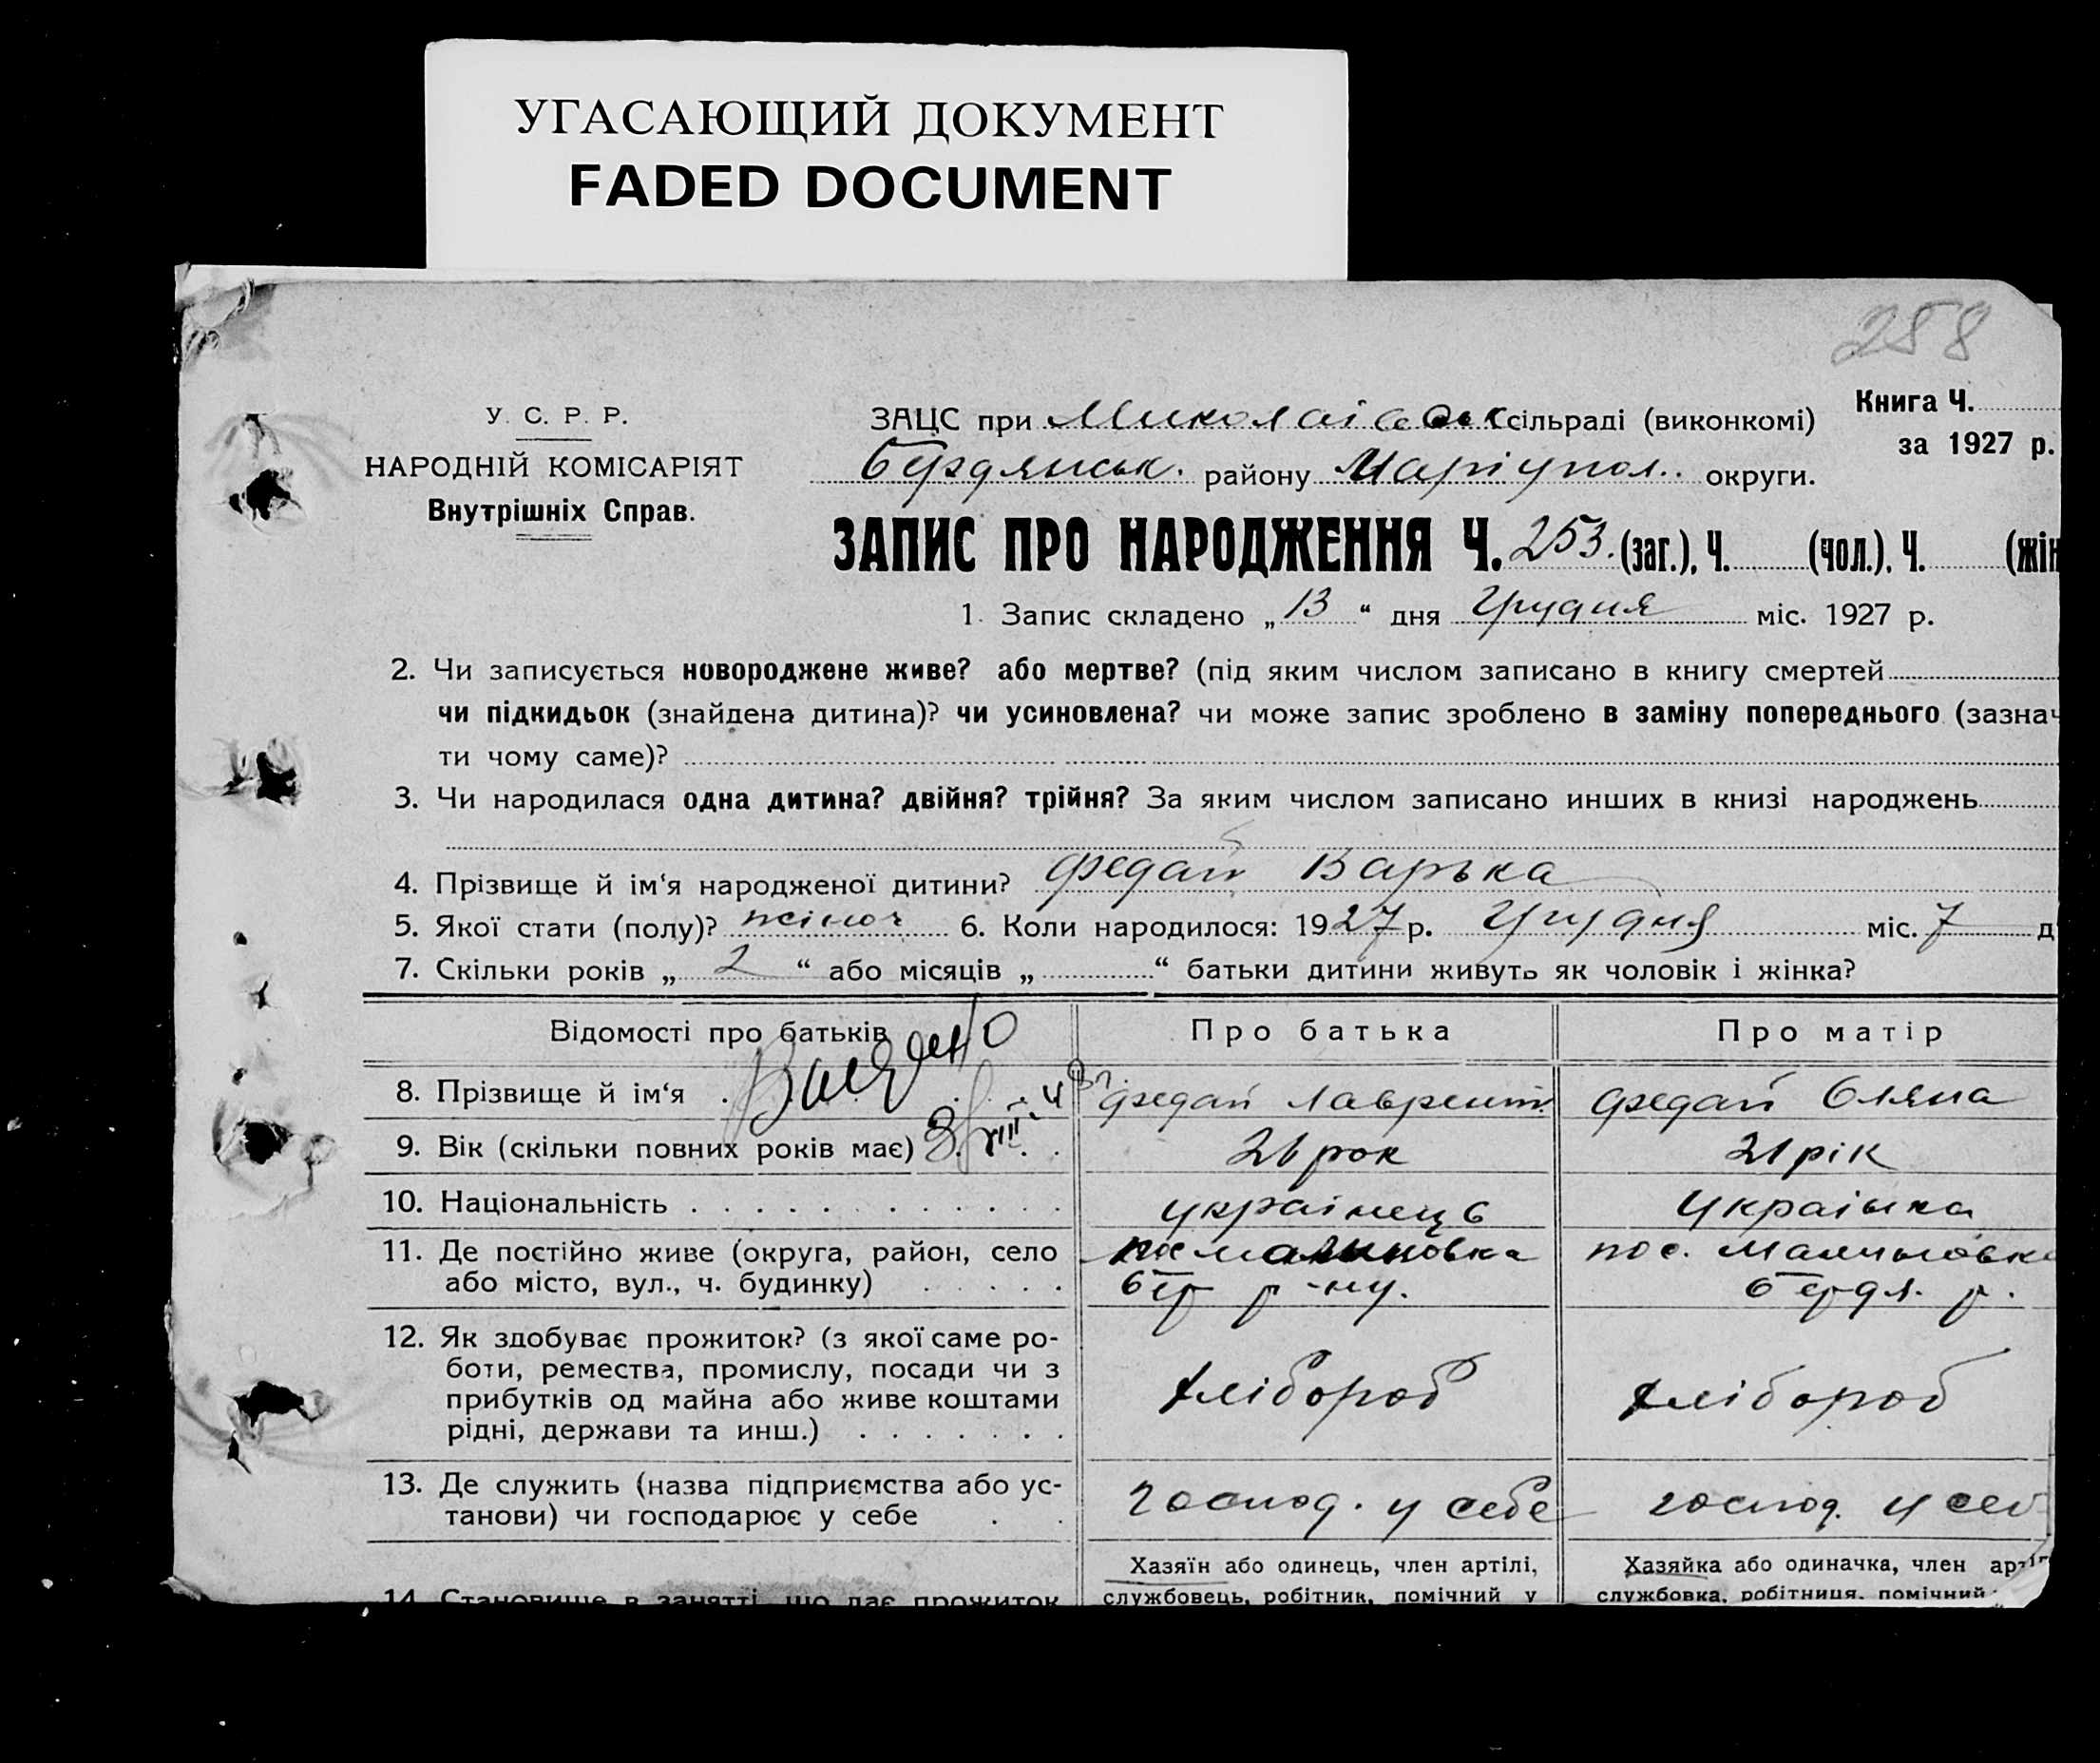 УГАСАЮЩИЙ ДОКУМЕНТ
FADED DOCUMENT
258
У. С. Р. Р.
НАРОДНІЙ КОМІСАРІЯТ
Внутрішніх Справ.
ЗАЦС при Миколаівськ сільраді (виконкомі)
Бердянськ. району Маріупол. округи.
Книга Ч.
за 1927 р.
ЗАПИС ПРО НАРОДЖЕННЯ Ч. 253. (заг.), Ч. (чол.), Ч. (жін
1. Запис складено „13“ дня Грудня міс. 1927 р.
2. Чи записується новороджене живе? або мертве? (під яким числом записано в книгу смертей
чи підкидьок (знайдена дитина)? чи усиновлена? чи може запис зроблено в заміну попереднього (зазнач
ти чому саме)?
3. Чи народилася одна дитина? двійня? трійня? За яким числом записано инших в книзі народжень
4. Прізвище й ім‘я народженої дитини? Федай Варька
5. Якої стати (полу)? жіноч 6. Коли народилося: 1927 р. Грудня міс. 7 д
7. Скільки років „2“ або місяців „ “ батьки дитини живуть як чоловік і жінка?
Відомості про батьків Про батька Про матір
8. Прізвище й ім‘я Федай Лаврент Федай Оляна
9. Вік (скільки повних років має) 21 рік
10. Національність украінець Украінка
11. Де постійно живе (округа, район, село пос Малиновка пос. Малиновка
або місто, вул., ч. будинку) бер р-ну. бердя. р.
12. Як здобуває прожиток? (з якої саме ро-
боти, ремества, промислу, посади чи з
прибутків од майна або живе коштами хлібороб хлібороб
рідні, держави та инш.)
13. Де служить (назва підприємства або ус-
танови) чи господарює у себе господ. у себе господ. у себ
Хазяїн або одинець, член артілі, Хазяйка або одиначка, член арт
14. Становище в занятті, що дає прожиток службовець, робітник, помічний у службовка, робітниця, помічний